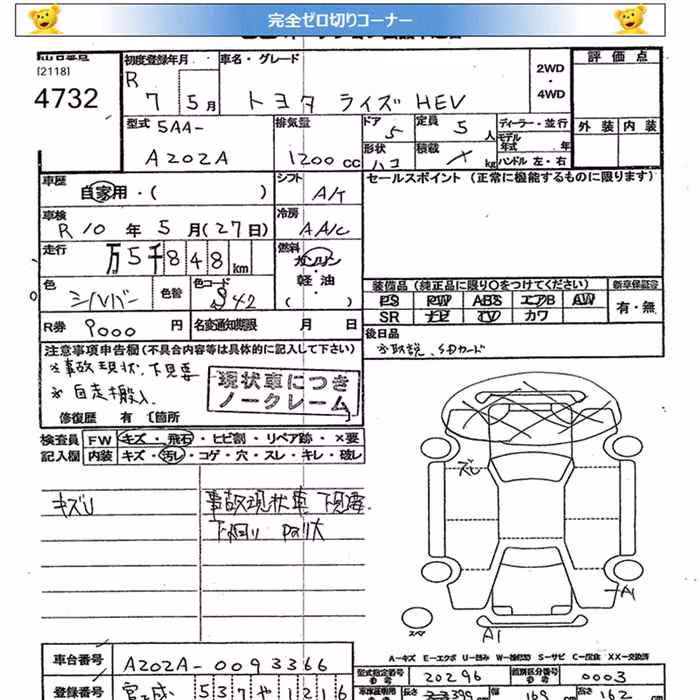 完全ゼロ切りコーナー
[2118]
4732
初度登録年月
R 7 5月
車名・グレード
トヨタ ライズ HEV
2WD
・
4WD
評価点
外装 内装
型式 5AA-
A202A
排気量
1200cc
ドア 5
定員 5人
形状 ハコ
積載 kg
ディーラー・並行
モデル年式 年
ハンドル 左・右
車歴
自家用・( )
シフト A/T
セールスポイント(正常に機能するものに限ります)
車検
R 10年 5月(27日)
冷房 AAC
走行
万 5千 8 4 8 km
燃料
ガソリン
軽・油
( )
色 シルバー
色替
色コード S42
装備品(純正品に限り○をつけてください)
新車保証書
PS PW ABS エアB AW
SR ナビ TV カワ
有・無
R券 9000円
名変通知期限 月 日
後日品
※取説、SDカード
注意事項申告欄(不具合内容等は具体的に記入して下さい)
※事故現状、下見要
※自走搬入
現状車につき
ノークレーム
修復歴 有 〔箇所
検査員
記入欄
FW キズ・飛石・ヒビ割・リペア跡・×要
内装 キズ・汚レ・コゲ・穴・スレ・キレ・破レ
キズU
事故現状車 下見要
下回り
ズレ
A1
A1
スペア
A-キズ E-エクボ U-凹み W-補修跡 S-サビ C-腐食 XX-交換済
車台番号 A202A-0093366
型式指定番号 20296
類別区分番号 0003
登録番号 宮城 537 や 1216
長さ 399cm
幅 169
高さ 162cm